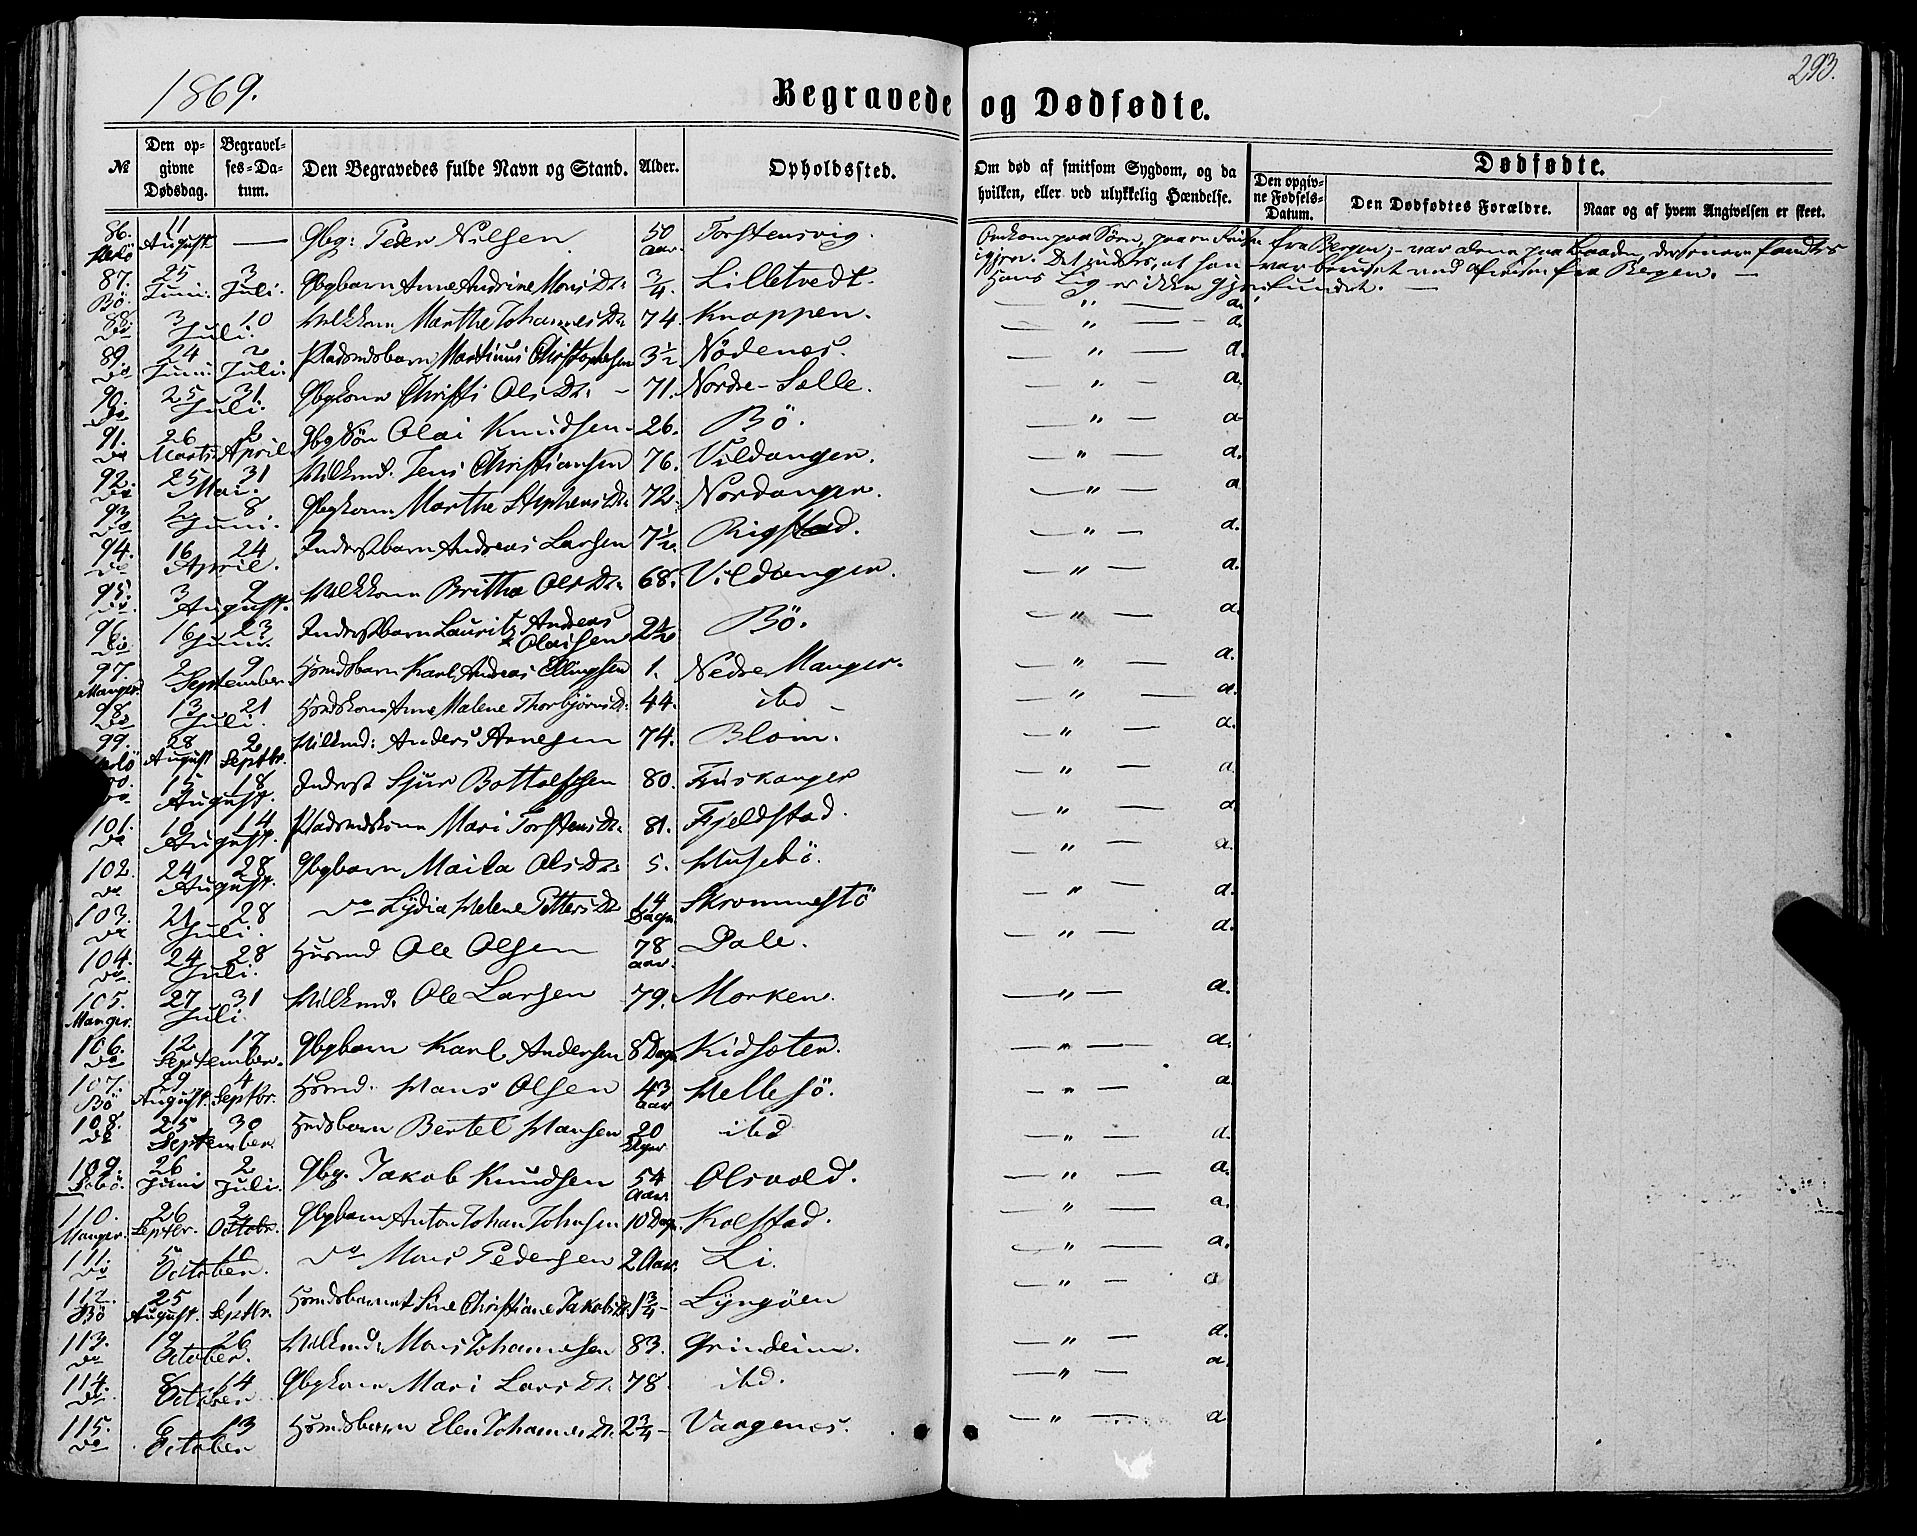 1869.
Begravede og Dødfødte.
293.
№
Den opgivne Dødsdag.
Begravelses-Datum.
Den Begravedes fulde Navn og Stand.
Alder.
Opholdssted.
Om død af smitsom Sygdom, og da hvilken, eller ved ulykkelig Hændelse.
Dødfødte.
Den opgivne Fødsels-Datum.
Den Dødfødtes Forældre.
Naar og af hvem Angivelsen er skeet.
86. 11 August — Gbg: Peder Nilsen 50 Aar. Torstensvig. Omkom paa Søen, paa en fra Bergen; – var alene paa Baaden, der senere fandtes
igjen. Det at han var beruset ved fra Bergen. —
Hans Lig er ikke gjenfundet. —
87. Bö. 25 Juni. 3 Juli. Gbgbarn Anne Andrine Monsdr: 3/4. Lilletvedt. — " — a.
88. do 3 10 Juli. Marthe Johannesdr: 74. Knappen. — " — a.
89. do 24 Juni. 2 Juli. Pladsmdsbarn Martinus Christophersen 3 1/2 Nödenes. — " — a.
90. do 25 31 Juli. Gbgkone Christi Olsdr: – 71. Nordre-Sælle. — " — a.
91. do 26 Marts. 2 April. Gbg Sön Olai Knudsen 26. Bö. — " — a
92. do 25 31 Mai. Vilkmd. Jens Christiansen 76. Vildanger. — " — a.
93. do 2 8 Juni. Gbgkone Marthe Stephensdr: 72. Nordanger. — " — a
94. do 16 24 April. Inderstbarn Andreas Larsen 7 1/2. Rigstad. — " — a.
95. do 3 9 August. Vilkkone Britha Olsdr: 68. Vildanger. — " — a.
96. do 16 23 Juni. Inderstbarn Lauritz Anders Olaisen Bö. — " — a.
97. Manger. 2 9 September. Hsmdsbarn Karl Andreas Ellingsen 1. Nedre Manger. — " — a.
98. do 13 21 Juli. Hsmdskone Anne Malene Thorbjörnsdr: 44. ibd — — " — a.
99. 28 August 2 Septbr. Vilkmd: Anders Arnesen 74. Blom. — " — a.
do 15 18 August. Inderst Sjur Bottolfsen 80. Fuskanger — " — a.
101. do 10 14 August. Pladsmdskone Mari Torstensdr: 81. Fjeldstad. — " — a.
102. do 24 28 August. Gbgbarn Maika Olsdr: 5. Husebö. — " — a.
103. do 21 28 Juli. do Lydia Helene Pettersdr 14 Dage Skrommestö — " — a.
104. do 24 28 Juli. Husmd Ole Olsen 78 aar. Dale. — " — a.
105. Manger. 27 31 Juli. Vilkmd. Ole Larsen 79. Morken. — " — a.
106. do 12 17 September. Gbgbarn Karl Andersen 8 Dage Kidsæter. — " — a.
107. Bö 29 August. 4 Septbr. Hsmd. Hans Olsen 43 aar Hellesö. — " — a.
108. do 25 30 September. Hsmdsbarn Bertel Hansen 20 Dage ibd — " — a.
109. 26 Juni 2 Juli. Gbg. Jakob Knudsen 54 aar. Olsvold. — " — a.
110. Manger. 26 Septbr. 2 Octobr. Gbgbarn Anton Johan Johnsen 10 Dage. Kolstad. — " — a.
111. do 5 10 October. do Mons Pedersen 2 Aar. Li. — " — a.
112. Bö 25 August. 1 Septbr. Hsmdsbarnet Sine Christiane Jakobsdr. 1 3/4 – Lyngöen — " — a
113. do 19 26 October. Vilkmd: Mons Johannesen 83. Grindeim. — " — a.
114. do. 8 14 October Gbgkone Mari Larsdr. 78 ibd. — " — a.
115. do 6 13 October Hsmdsbarn Elen Johannesdr. 2 3/4 – Vaagenes. — " — a